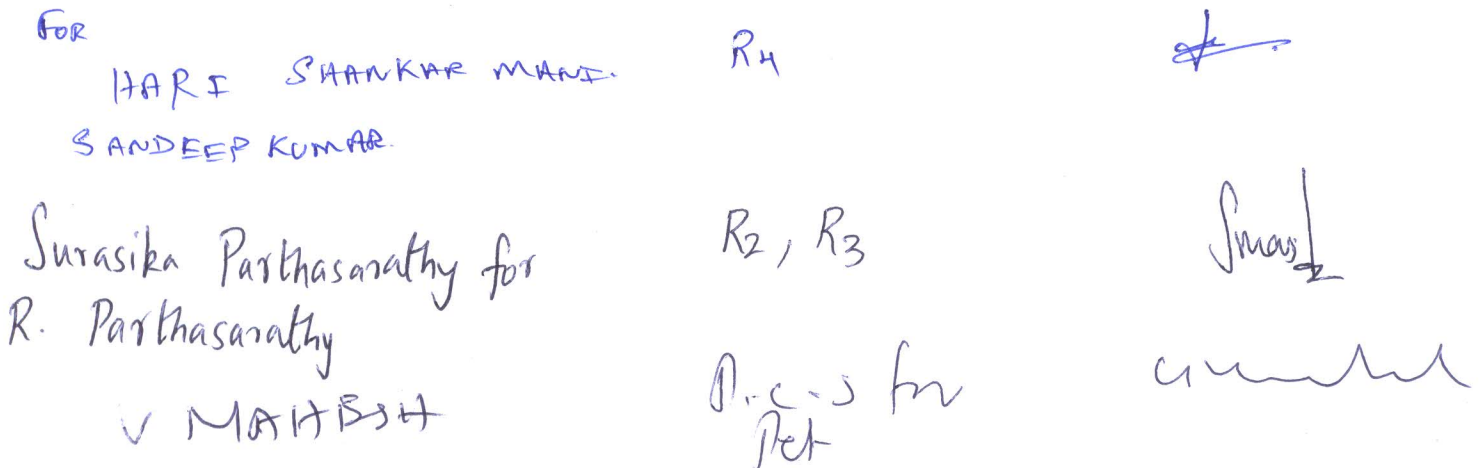 FOR
HARI SHANKAR MANI. R4
SANDEEP KUMAR.
Surasika Parthasarathy for R2, R3
R. Parthasarathy
V MAHESH P.C.S for
Pet